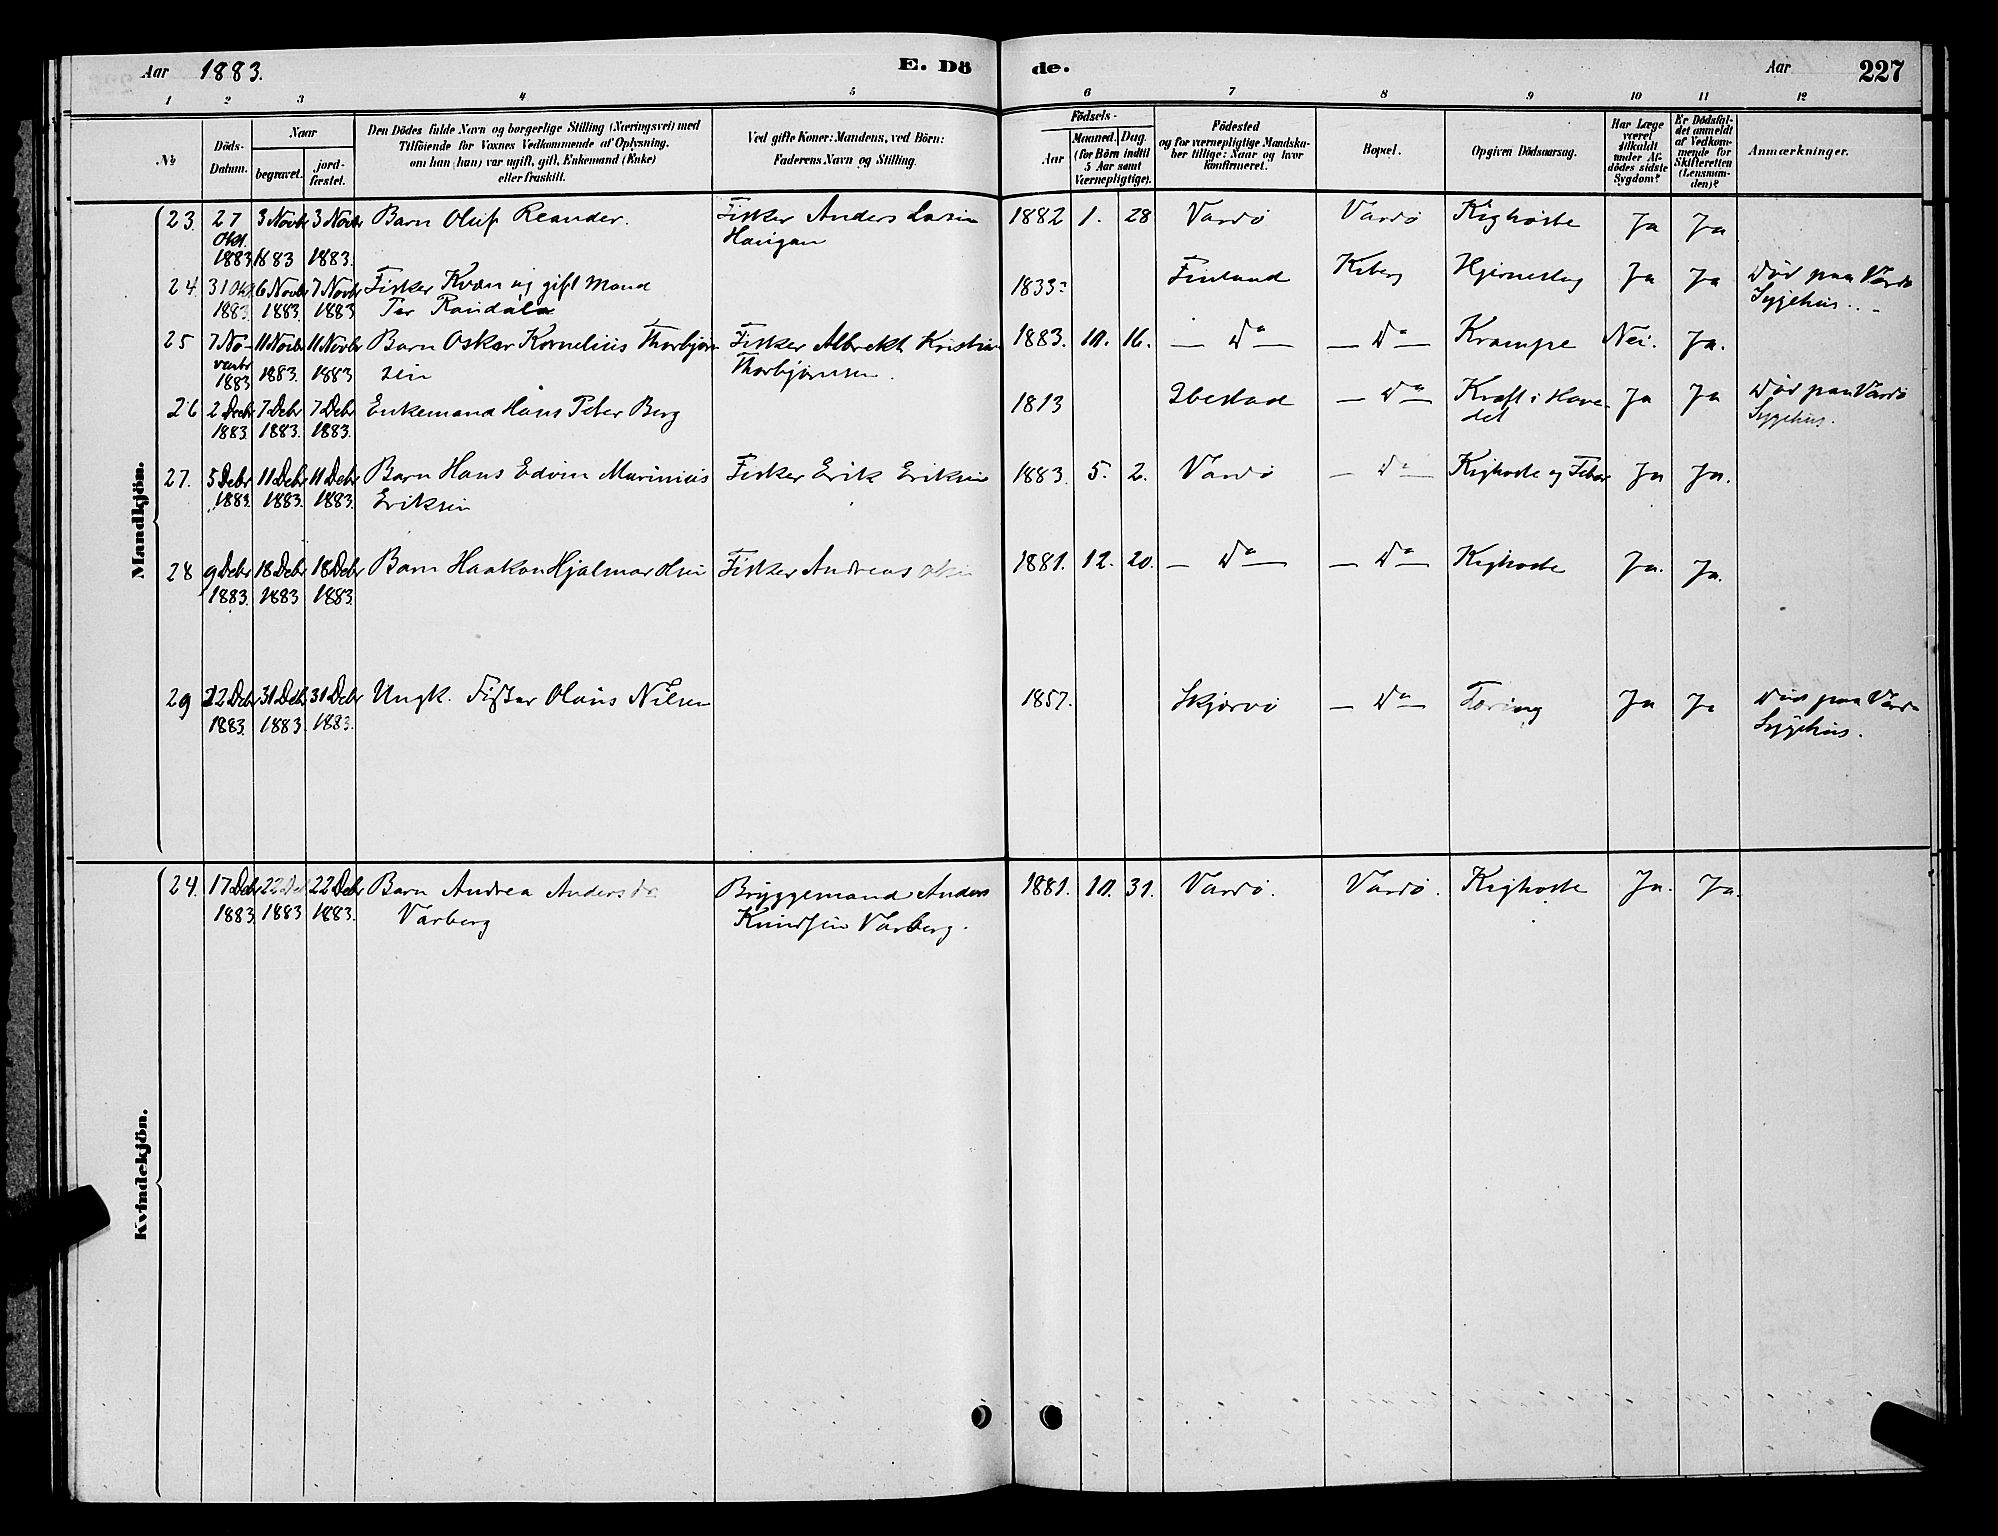 Aar 1883. E. Dö de. Aar 227
1 2 3 4 5 6 7 8 9 10 11 12
№
Döds-
Datum.
Naar
begravet.
jord-
fæstet.
Den Dödes fulde Navn og borgerlige Stilling (Næringsvei) med
Tilföiende for Voxnes Vedkommende af Oplysning,
om han (hun) var ugift, gift, Enkemand (Enke)
eller fraskilt.
Ved gifte Koner: Mandens, ved Börn:
Faderens Navn og Stilling.
Födsels-
Aar
Maaned. Dag.
(for Börn indtil
5 Aar samt
Værnepligtige).
Födested
og for værnepligtige Mandska-
ber tillige: Naar og hvor
konfirmeret.
Bopæl.
Opgiven Dödsaarsag.
Har Læge
været
tilkaldt
under Af-
dödes sidste
Sygdom?
Er Dödsfal-
det anmeldt
af Vedkom-
mende for
Skifteretten
(Lensman-
den)?
Anmærkninger.
Mandkjön.
23. 27 3 Novbr 3 Novbr Barn Oluf Reander. Fisker Anders Larsen 1882 1. 28 Vardø Vardø Kighoste Ja Ja
Okt. Haugan
1883 1883 1883.
24. 31 Okt 6 Novbr 7 Novbr Fisker Kvæn og gift Mand 1833? Finland Kiberg Hjerneslag Ja Ja Død paa Vardø
1883. 1883. 1883 Per Sygehus.
25 7 No- 11 Novbr 11 Novbr Barn Oskar Kornelius Thorbjørn Fisker Albrekt Kristian 1883. 10. 16. — Do — — Do — Krampe Nei. Ja.
vembr 1883. 1883 sen Thorbjørnsen.
1883
26 2 Decb 7 Debr 7 Debr Enkemand Hans Peter Berg 1813 Ibestad — Do — Kræft i Hove- Ja Ja Død paa Vardø
1883. 1883. 1883. det Sygehus.
27. 5 Debr 11 Debr 11 Debr Barn Hans Edvin Marinius Fisker Erik Eriksen 1883. 5. 2. Vardø — Do — Kighoste og Feber Ja Ja.
1883. 1883. 1883. Eriksen
28 9 Debr 18 Debr 18 Debr Barn Haakon Hjalmar Olsen Fisker Andreas Olsen 1881. 12. 20. — Do — — Do — Kighoste Ja. Ja.
1883. 1883 1883.
29 22 Debr 31 Debr 31 Debr Ungk. Fisker Olaus Nilsen 1857. Skjærvø — Do — Tæring Ja Ja Død paa Vardø
1883. 1883. 1883. Sygehus.
Kvindekjön.
24. 17 Debr 22 Deb 22 Debr Barn Andrea Andersdr Bryggemand Anders 1881. 10. 31. Vardø. Vardø. Kighoste Ja. Ja.
1883 1883 1883. Varberg Knudsen Varberg.